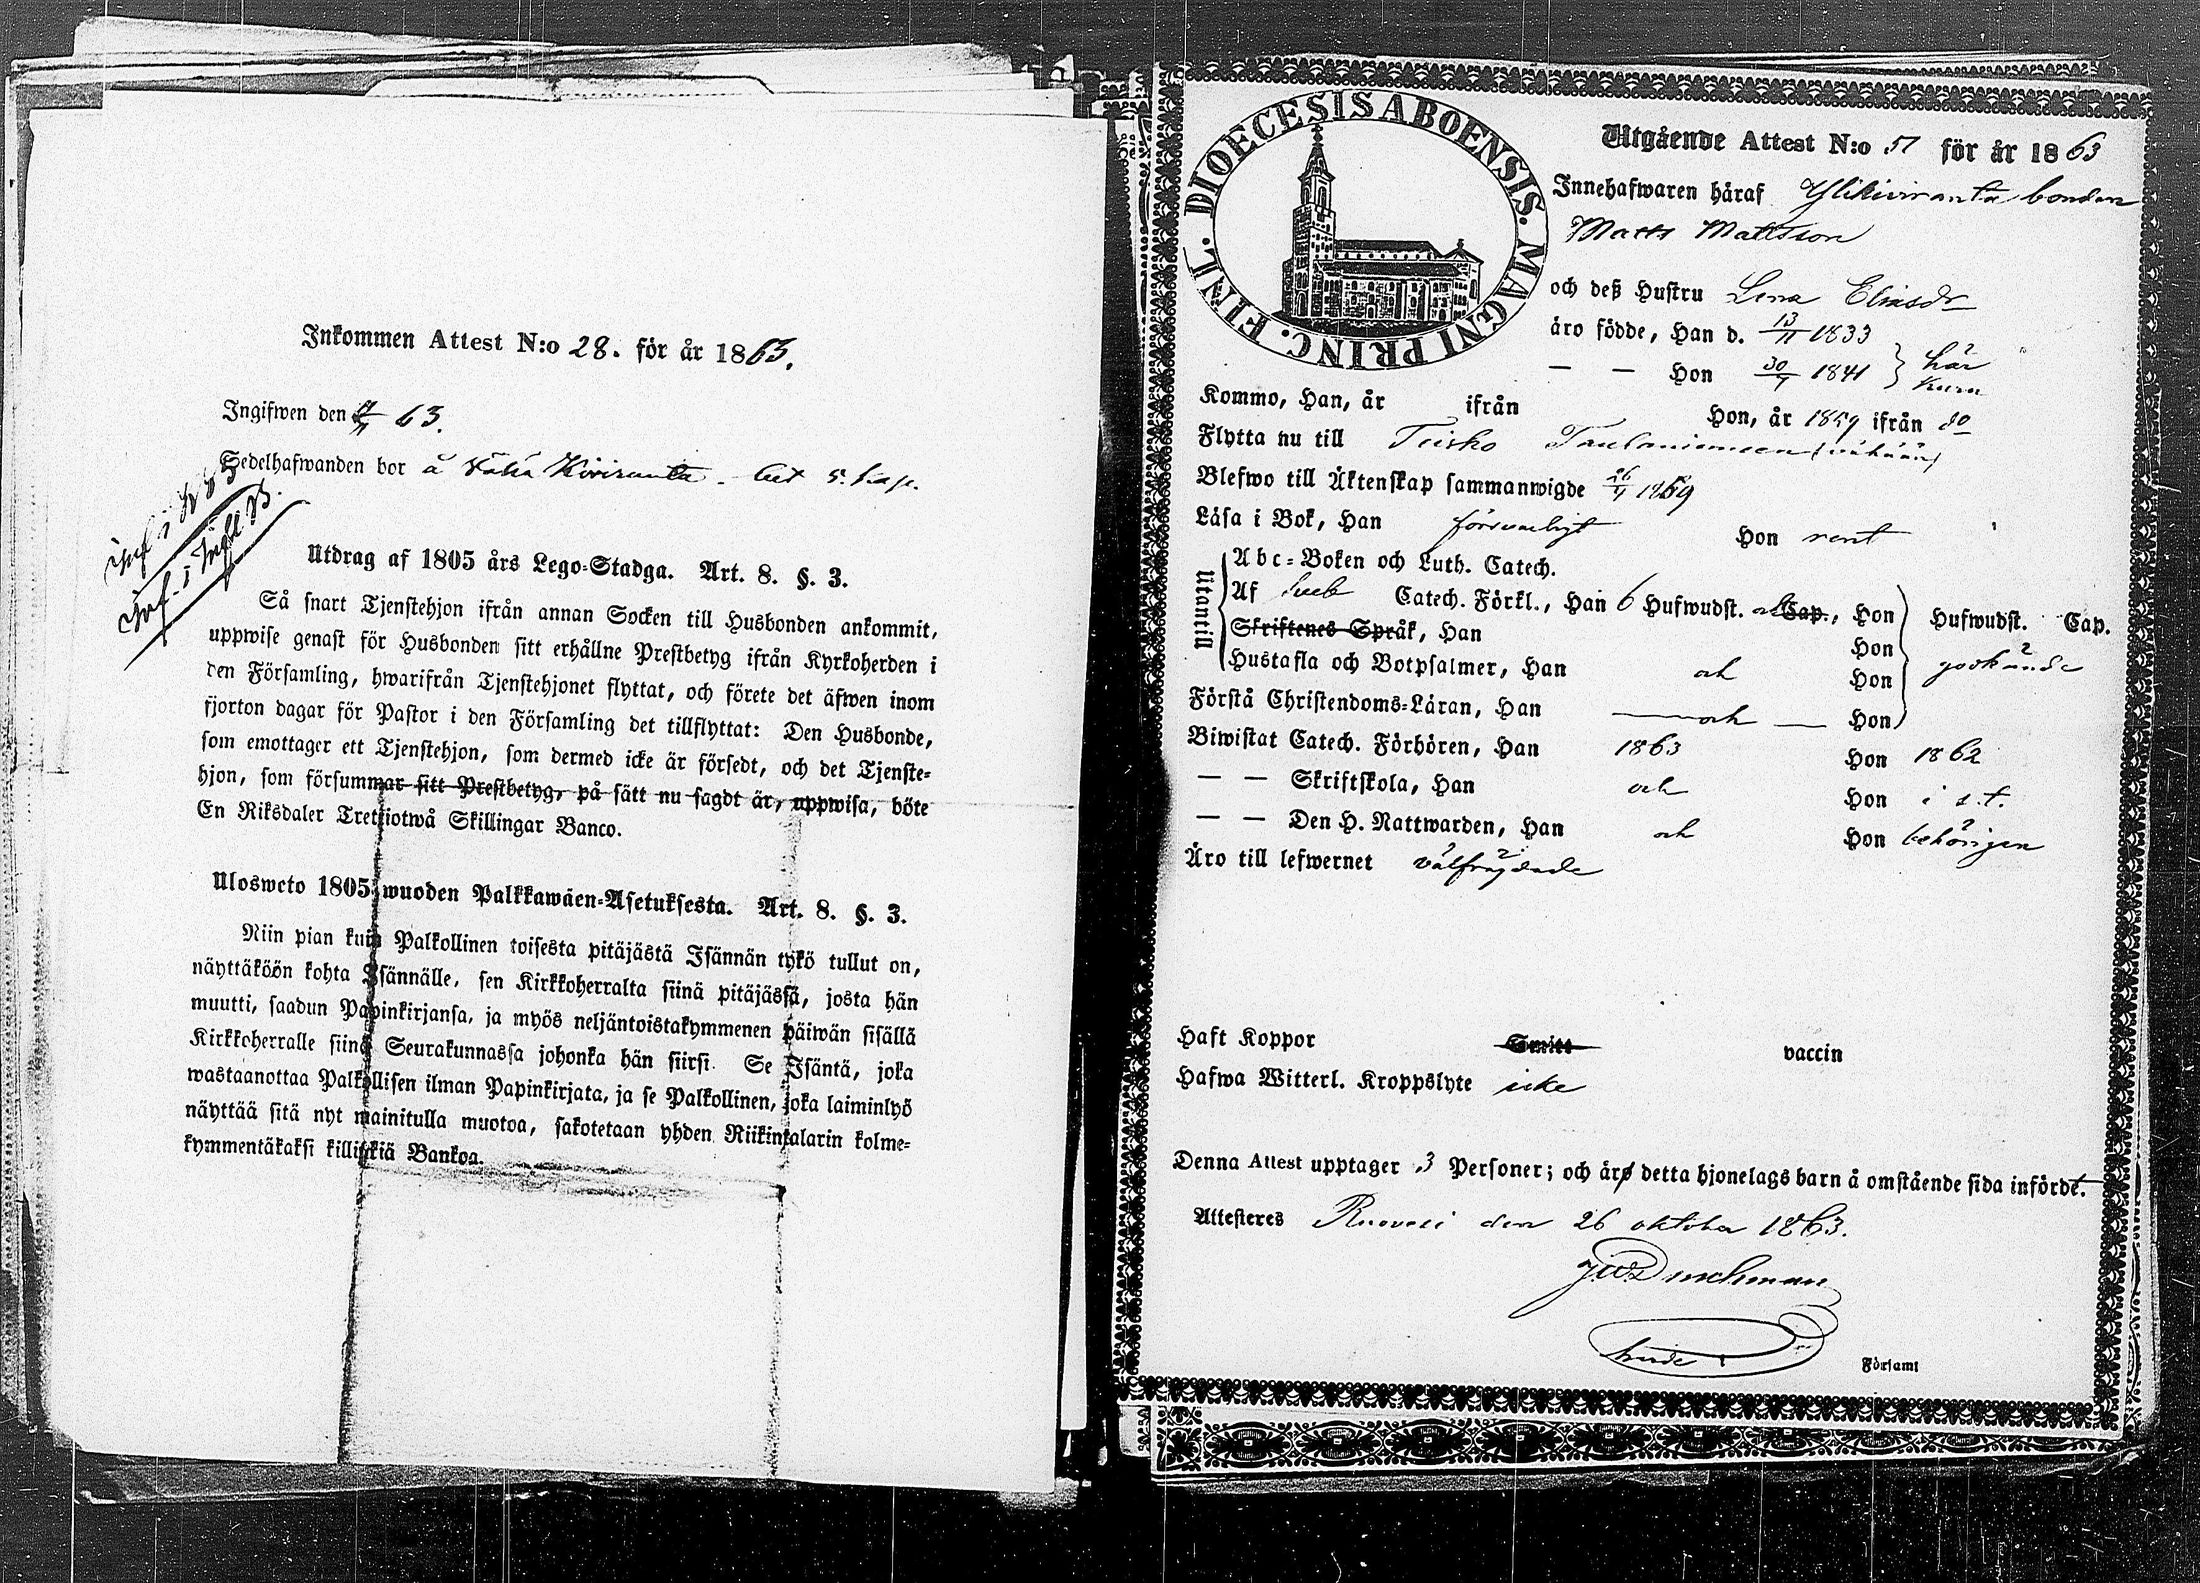 Inkommen Attest N:o 28. för år 1863.
Ingifwen den 63.
Sedelhafwanden bor å Vähä Kiviranta.
Inf. i
Inf. i Infl. B.
Utdrag af 1805 års Lego-Stadga. Art. 8. §. 3.
Så snart Tjenstehjon ifrån annan Socken till Husbonden ankommit,
uppwise genast för Husbonden sitt erhållne Prestbetyg ifrån Kyrkoherden i
den Församling, hwarifrån Tjenstehjonet flyttat, och förete det äfwen inom
fjorton dagar för Pastor i den Församling det tillflyttat: Den Husbonde,
som emottager ett Tjenstehjon, som dermed icke är försedt, och det Tjenste-
hjon, som försummar sitt Prestbetyg, på sätt nu sagdt är, uppwisa, böte
En Riksdaler Trettiotwå Skillingar Banco.
Ulosweto 1805 wuoden Palkkawäen-Asetuksesta. Art. 8. §. 3.
Niin pian kuin Palkollinen toisesta pitäjästä Isännän tykö tullut on,
näyttäköön kohta Isännälle, sen Kirkkoherralta siinä pitäjässä, josta hän
muutti, saadun Papinkirjansa, ja myös neljäntoistakymmenen päiwän sisällä
Kirkkoherralle siinä Seurakunnassa johonka hän siirsi. Se Isäntä, joka
wastaanottaa Palkollisen ilman Papinkirjata, ja se Palkollinen, joka laiminlyö
näyttää sitä nyt mainitulla muotoa, sakotetaan yhden Riikintalarin kolme-
kymmentäkaksi killinkiä Bankoa.
DIOECESIS ABOENSIS. MAGNI PRINC. FINL.
Utgående Attest N:o 51 för år 1863
Innehafwaren häraf Ylikiviranta bonden
Matts Mattsson
och deß Hustru Lena Eliasdr
äro födde, Han d. 13/11 1833
— — Hon 30/7 1841 } här
Kuru
Kommo, Han, år ifrån Hon, år 1859 ifrån do
Flytta nu till Teisko Taulaniemeen (vähään)
Blefwo till Äktenskap sammanwigde 1859
Läsa i Bok, Han försvarligt Hon rent
Utantill
Abc-Boken och Luth. Catech.
Af Catech. Förkl., Han 6 Hufwudst. och Cap., Hon Hufwudst. Cap.
Skriftenes Språk, Han Hon
Hustafla och Botpsalmer, Han och Hon godkände
Förstå Christendoms-Läran, Han — och — Hon
Biwistat Catech. Förhören, Han 1863 Hon 1862
— — Skriftskola, Han och Hon i s. t.
— — Den H. Nattwarden, Han och Hon behörigen
Äro till lefwernet välfräjdade
Haft Koppor vaccin
Hafwa Witterl. Kroppslyte icke
Denna Attest upptager 3 Personer; och äro detta hjonelags barn å omstående sida infördt.
Attesteres Ruovesi den 26 oktober 1863.
Församl